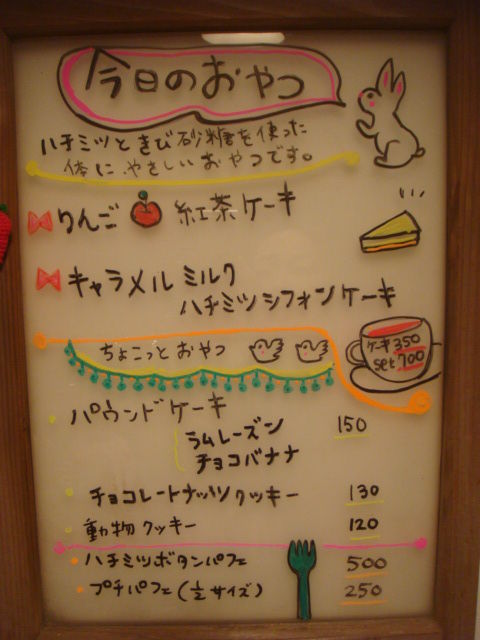 今日のおやつ
ハチミツときび砂糖を使った
体にやさしいおやつです。
りんご 紅茶ケーキ
キャラメルミルク
ハチミツシフォンケーキ
ケーキ350
set 700
ちょこっとおやつ
パウンドケーキ
ラムレーズン 150
チョコバナナ
チョコレートナッツクッキー 130
動物クッキー 120
ハチミツボタンパフェ 500
プチパフェ(1/2サイズ) 250